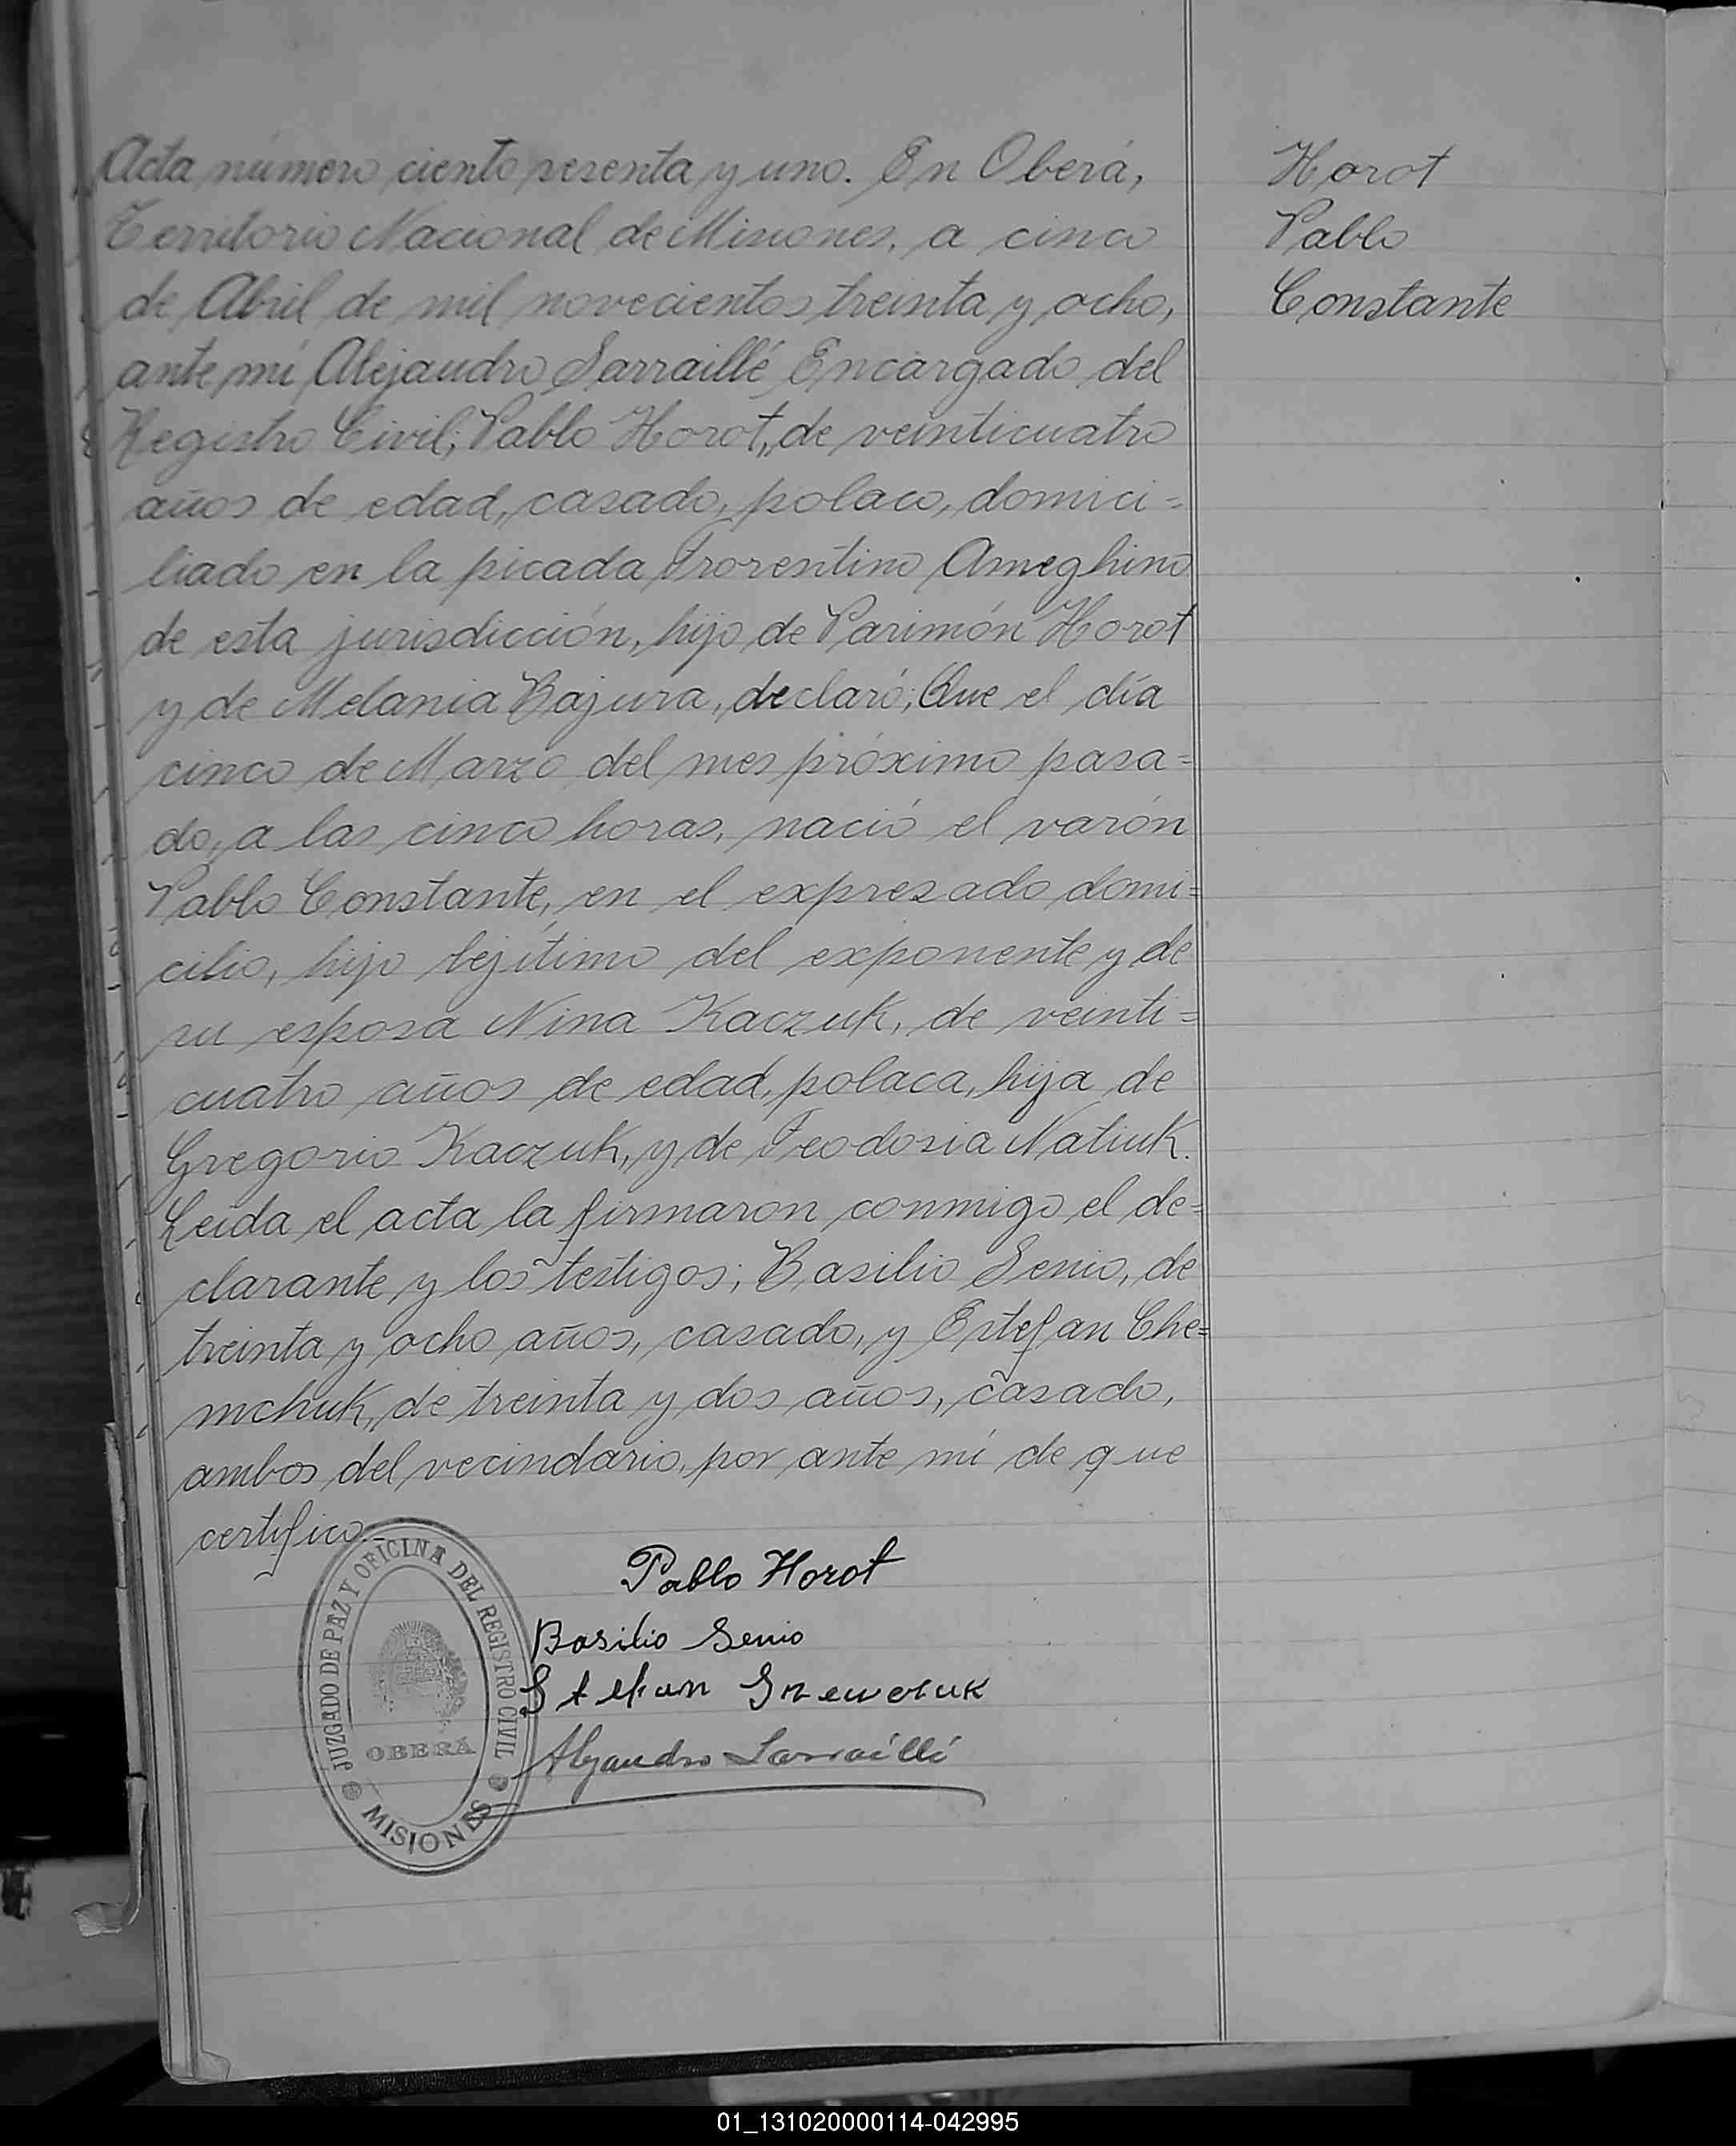 Acta número ciento sesenta y uno. En Oberá,
Territorio Nacional de Misiones, a cinco
de Abril de mil novecientos treinta y ocho,
ante mí Alejandro Sarraillé Encargado del
Registro Civil; Pablo Horot, de veinticuatro
años de edad, casado, polaco, domici=
liado en la picada Frorentino Ameghino
de esta jurisdicción, hijo de Parimón Horot
y de Melania Bajura, declaró; Que el día
cinco de Marzo del mes próximo pasa=
do, a las cinco horas, nació el varón
Pablo Constante, en el expresado domi=
cilio, hijo lejítimo del exponente y de
su esposa Nina Kaczuk, de veinti=
cuatro años de edad, polaca, hija de
Gregorio Kaczuk, y de Feodosia Natiuk.
Leída el acta la firmaron conmigo el de=
clarante y los testigos; Basilio Senio, de
treinta y ocho años, casado, y Estefan Che=
mchuk, de treinta y dos años, casado,
ambos del vecindario, por ante mí de que
certifico.-
Horot
Pablo
Constante
Pablo Horot
Basilio Senio
Stefan
Alejandro Sarraillé
JUZGADO DE PAZ Y OFICINA DEL REGISTRO CIVIL
OBERÁ
MISIONES
01_131020000114-042995